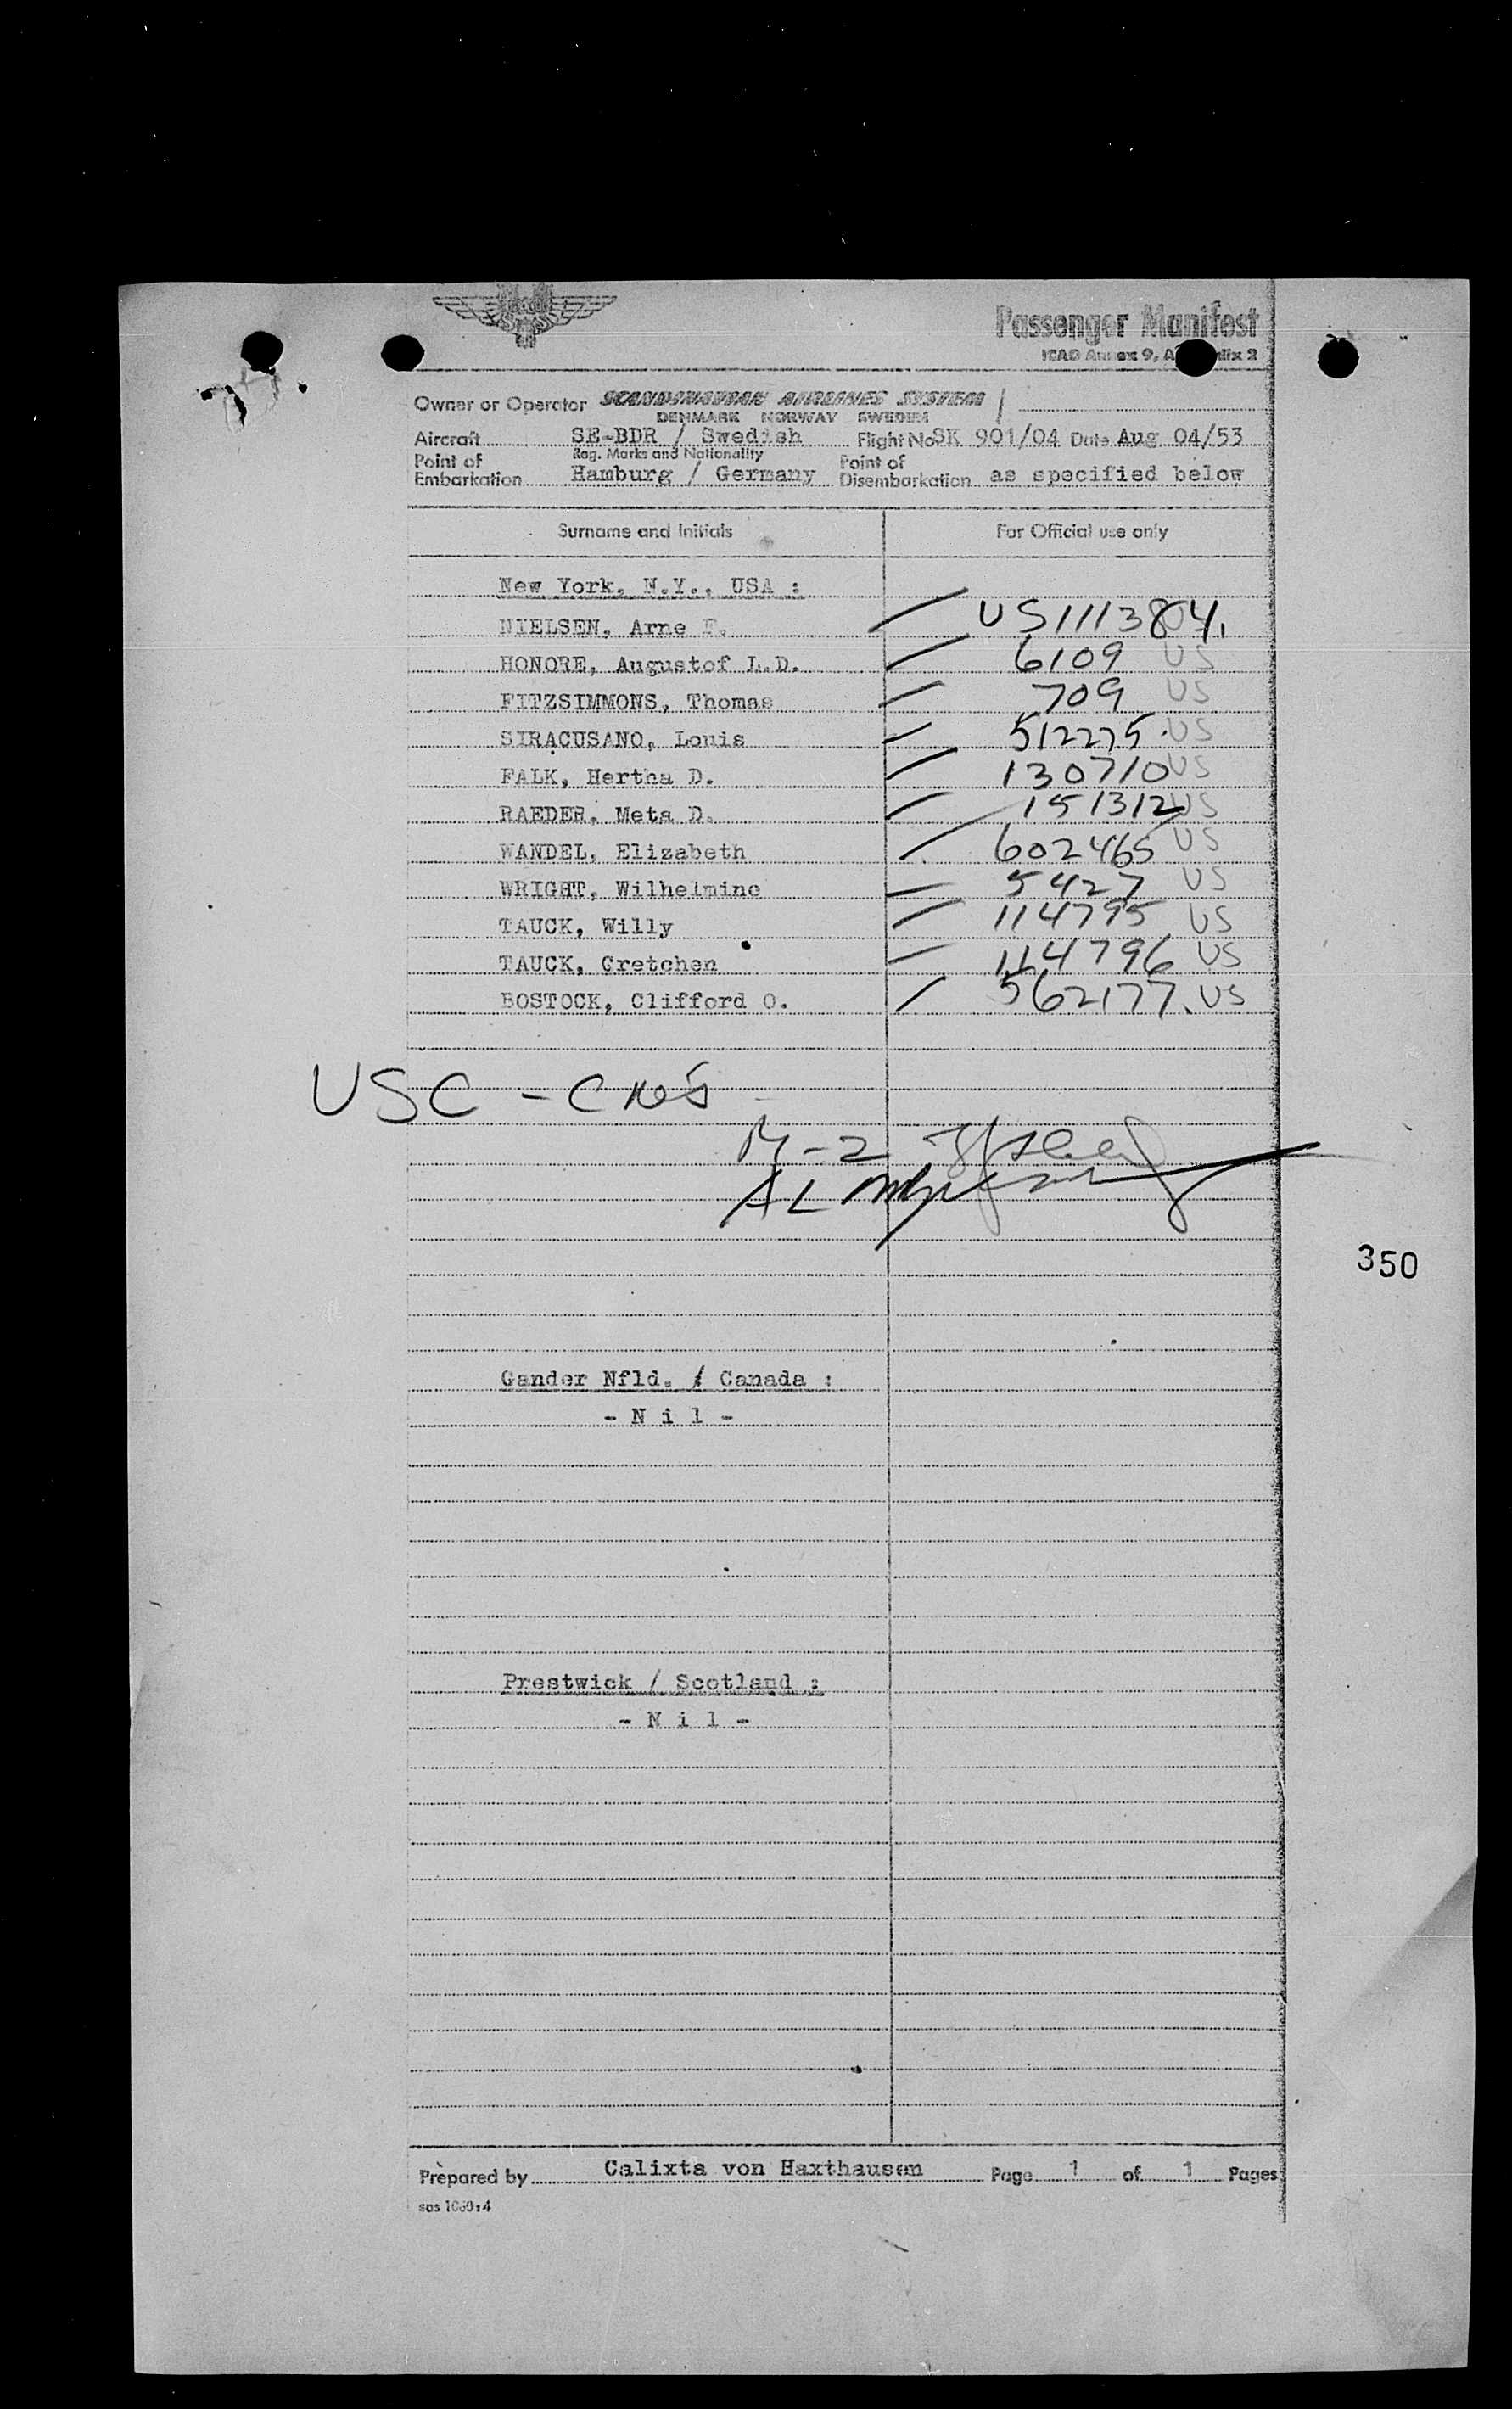 Passenger Manifest
ICAO Annex 9, Appendix 2
Owner or Operator SCANDINAVIAN AIRLINES SYSTEM
DENMARK NORWAY SWEDEN
Aircraft SE-BDR / Swedish Flight No SK 901/04 Date Aug 04/53
Reg. Marks and Nationality
Point of Embarkation Hamburg / Germany Point of Disembarkation as specified below
Surname and Initials For Official use only
New York, N.Y., USA :
NIELSEN, Arne F. US111384.
HONORE, Augustof L.D. 6109 US
FITZSIMMONS, Thomas 709 US
SIRACUSANO, Louis 512275 US
FALK, Hertha D. 130710 US
RAEDER, Meta D. 151312 US
WANDEL, Elizabeth 602465 US
WRIGHT, Wilhelmine 5427 US
TAUCK, Willy 114795 US
TAUCK, Gretchen 114796 US
BOSTOCK, Clifford O. 562177. US
USC -
M-2
AL
350
Gander Nfld. / Canada :
- N i l -
Prestwick / Scotland :
- N i l -
Prepared by Calixta von Haxthausen Page 1 of 1 Pages
sas 1060:4